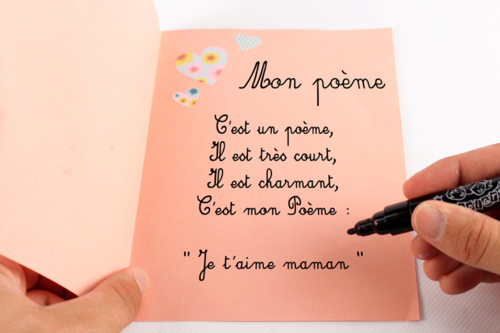 Mon poème
C'est un poème,
Il est très court,
Il est charmant,
C'est mon Poème :
" Je t'aime maman "